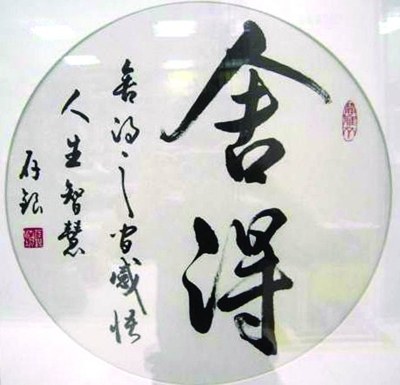 舍得
舍得之间感悟
人生智慧
存银